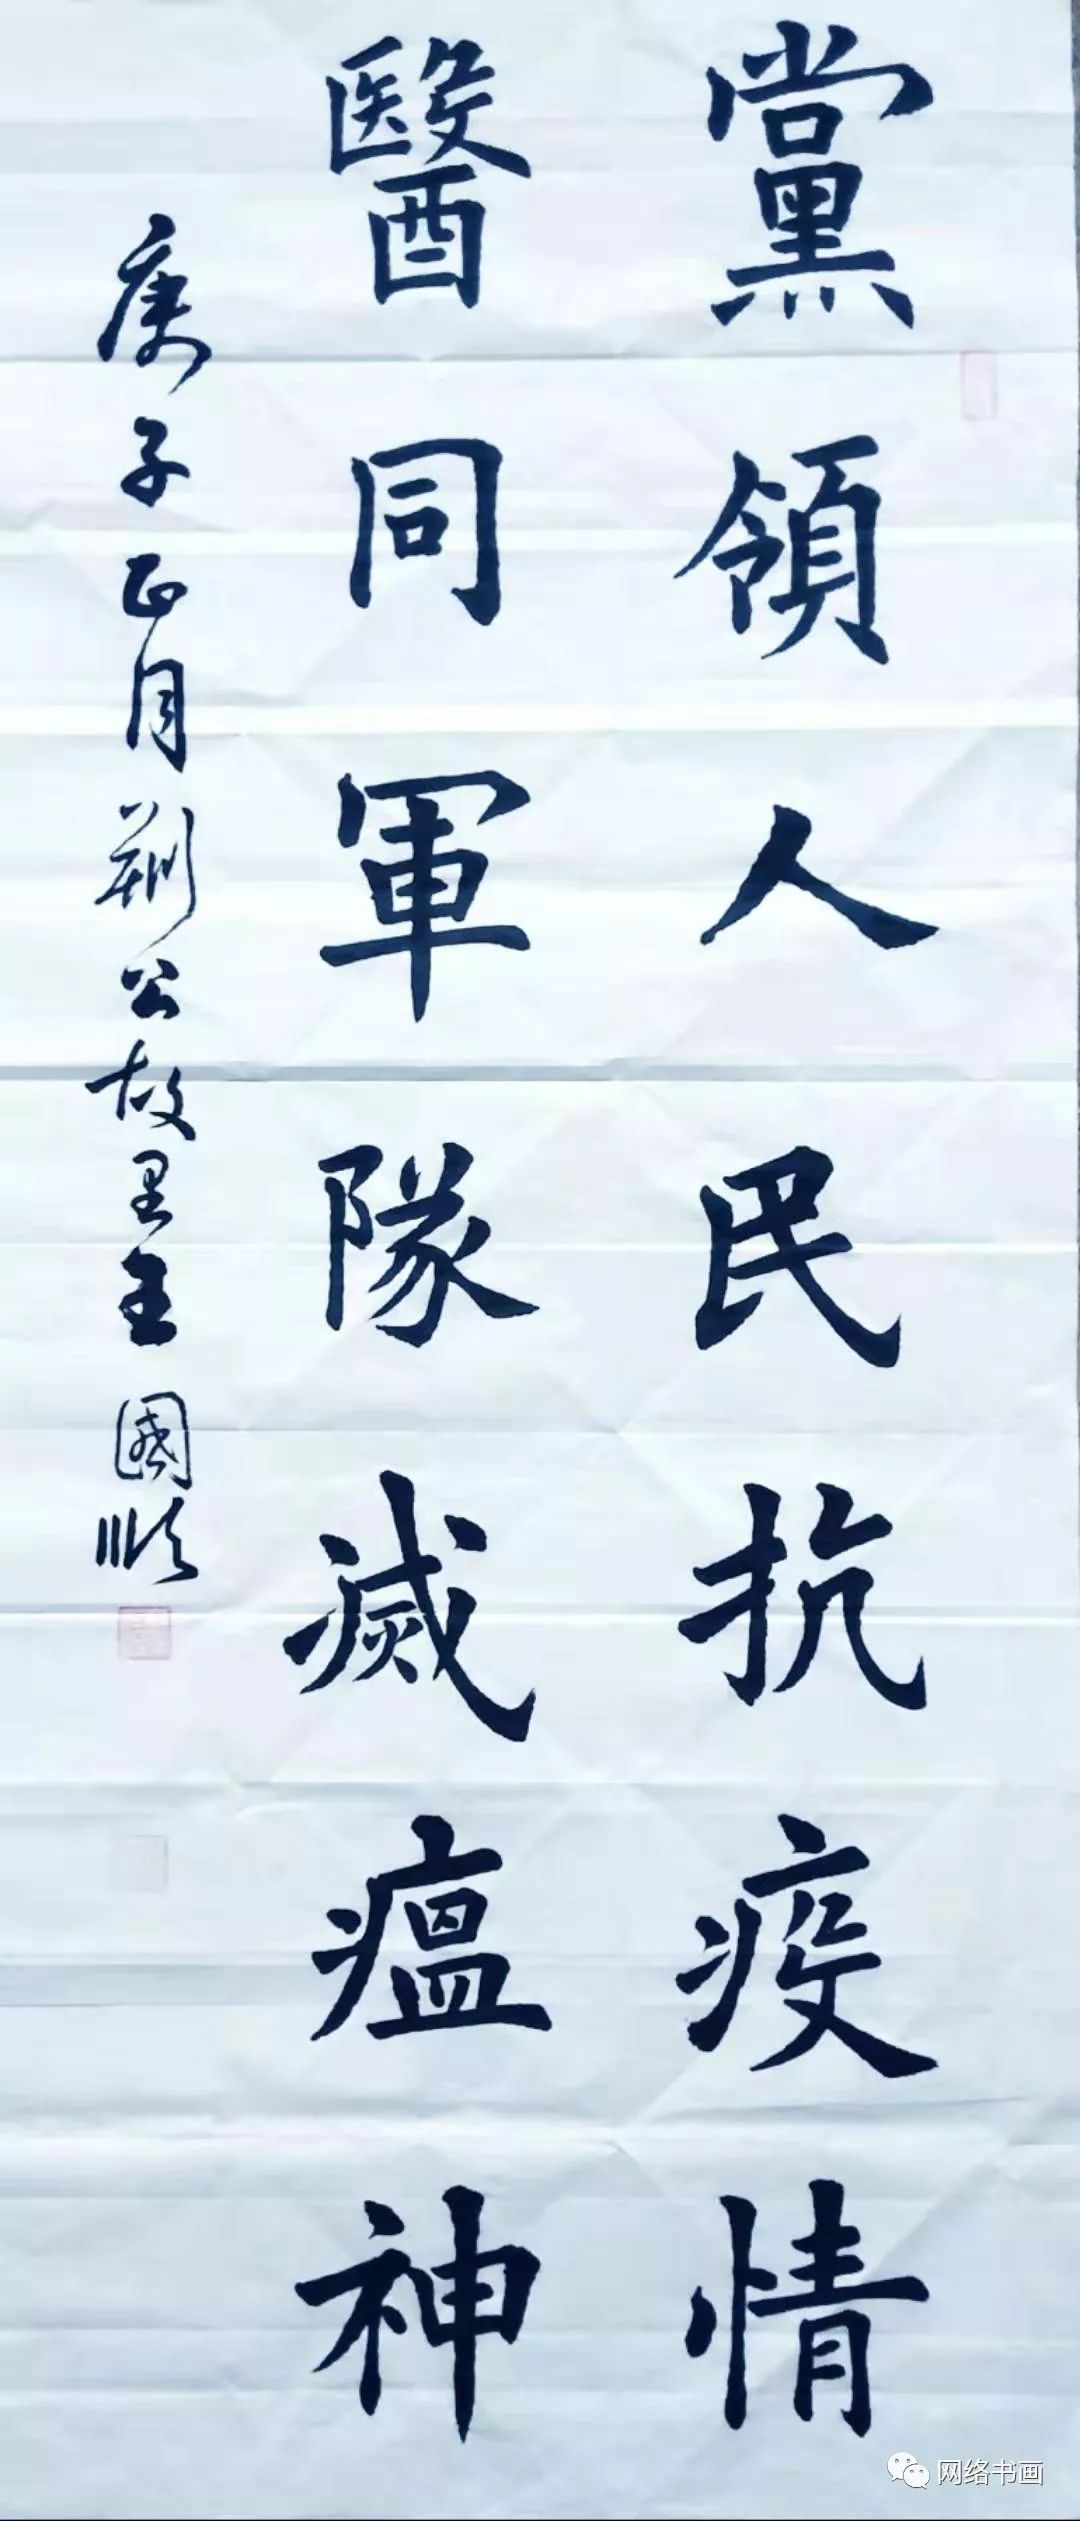 黨領人民抗疫情
醫同軍隊滅瘟神
庚子正月荊公故里王國順
网络书画